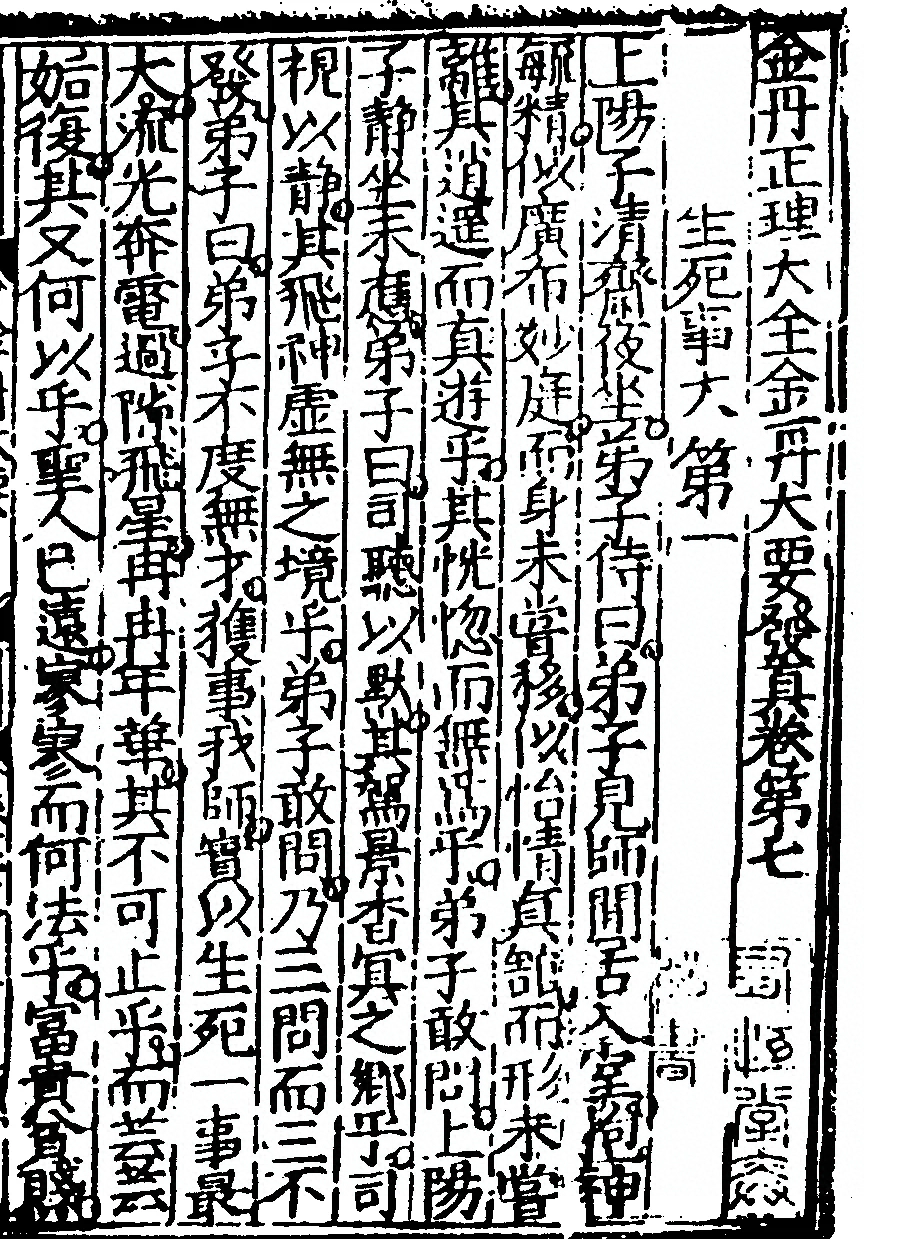 金丹正理大全金丹大要發真卷第七
生死事大第一
上陽子清齋夜坐弟子侍曰弟子見師閒居入室抱神
毓精以廣布妙庭而身未嘗移以怡情真誥而形未嘗
離其逍遥而真遊乎其恍惚而無為乎弟子敢問上陽
子靜坐未應弟子曰司聽以默其駕景杳冥之鄉乎司
視以靜其飛神虛無之境乎弟子敢問乃三問而三不
發弟子曰弟子不度無才獲事我師實以生死一事最
大流光奔電過隙飛星冉冉年華其不可止乎而芸芸
始復其又何以乎聖人已遠寥寥而何法乎富貴貧賤